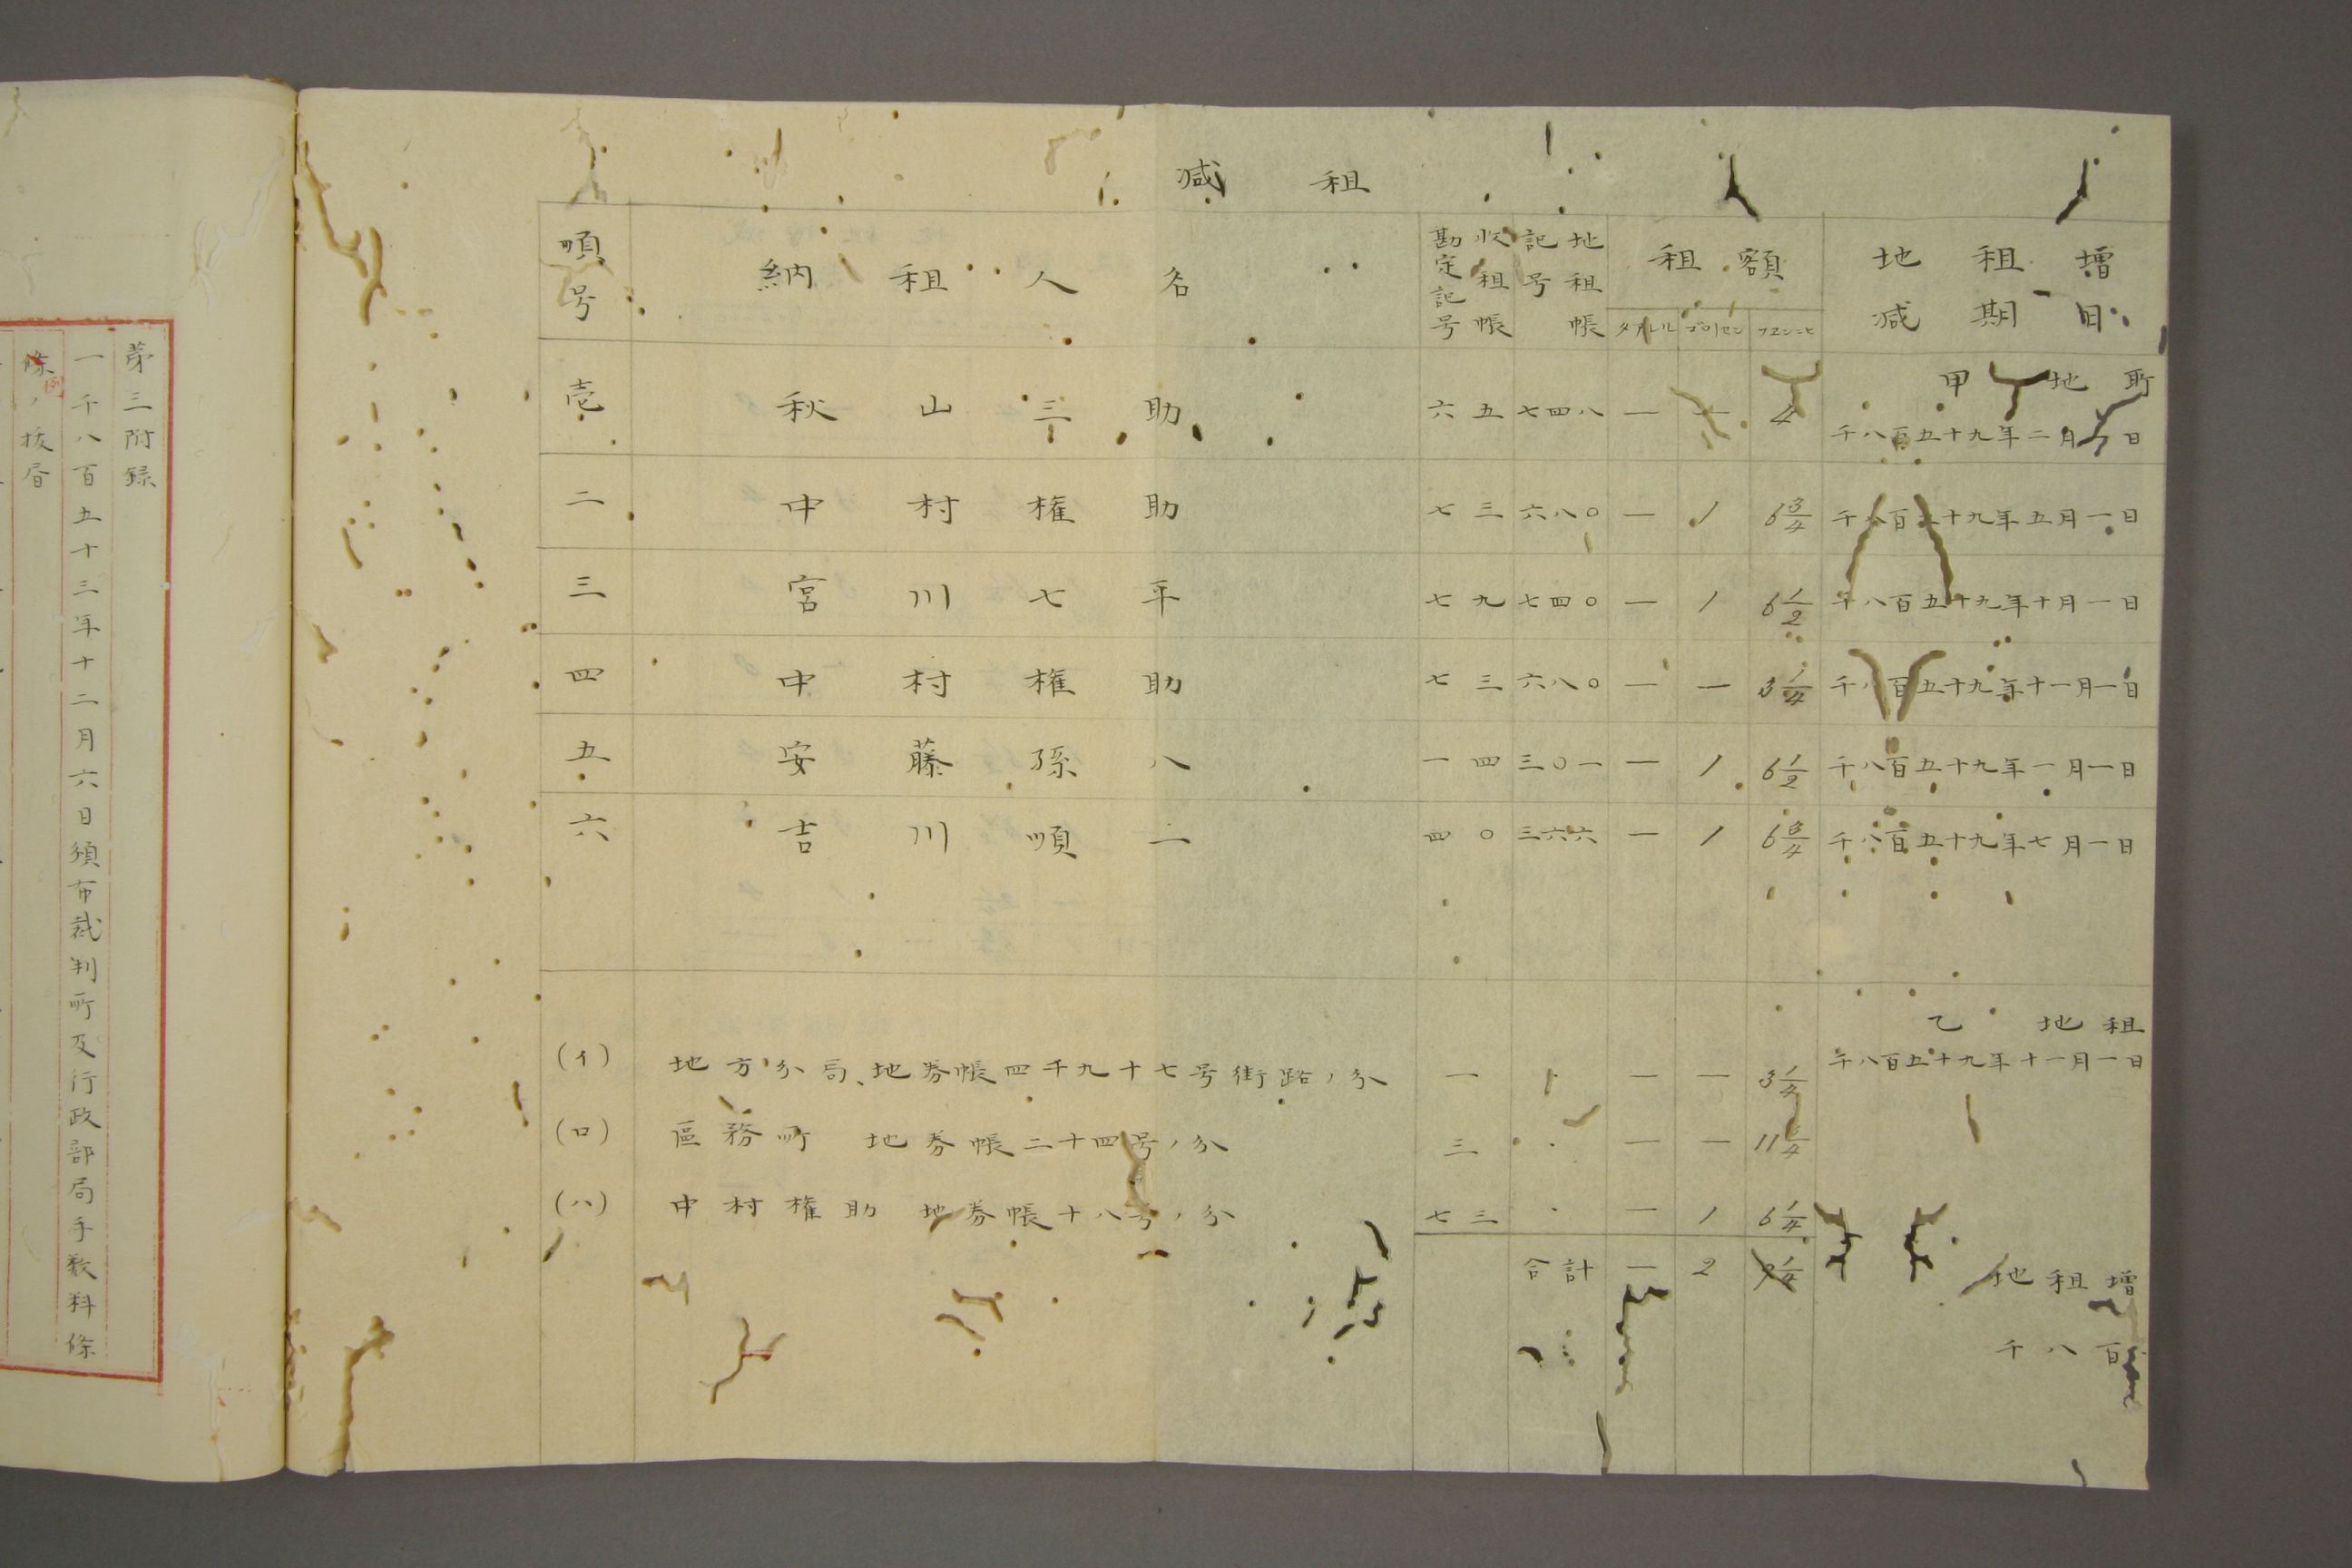 減租
順号 納租人名 収租帳勘定記号 地租帳記号 租額 地租増減期日
タアレル ゴロセン フエンニヒ
甲 地 所
壱 秋山三助 六五 七四八 一 一 4 千八百五十九年二月 日
二 中村権助 七三 六八〇 一 1 6 3/4 千八百五十九年五月一日
三 宮川七平 七九 七四〇 一 1 6 1/2 千八百五十九年十月一日
四 中村権助 七三 六八〇 一 一 3 1/4 千八百五十九年十一月一日
五 安藤孫八 一四 三〇一 一 1 6 1/2 千八百五十九年一月一日
六 吉川順一 四〇 三六六 一 1 6 3/4 千八百五十九年七月一日
乙 地租
千八百五十九年十一月一日
(イ) 地方分局、地券帳四千九十七号街路ノ分 一 一 一 3 1/4
(ロ) 區務所 地券帳二十四号ノ分 三 一 一 11
(ハ) 中村権助 地券帳十八号ノ分 七三 一 1 6 1/4
合計 一 2
地租増
千八百
第三附録
一千八百五十三年十二月六日頒布裁判所及行政部局手数料條
條ノ抜畧